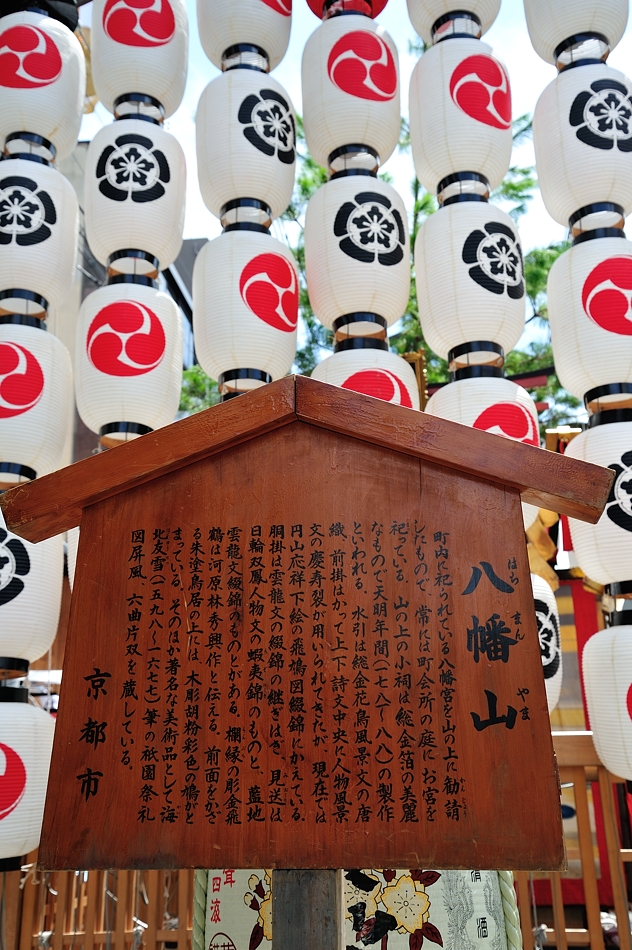 八幡山
はち まん やま
町内に祀られている八幡宮を山の上に勧請
したもので、常には町会所の庭に お宮を
祀っている。山の上の小祠は総金箔の美麗
なもので天明年間(一七八一〜八八)の製作
といわれる。水引は総金花鳥風景文の唐
織、前掛はかつて上下詩文中央に人物風景
文の慶寿裂が用いられてきたが、現在では
円山応祥下絵の飛鴻図綴錦にかえている。
胴掛は雲龍文の綴錦の継ぎはぎ、見送は
日輪双鳳人物文の蝦夷錦のものと、藍地
雲龍文綴錦のものとがある。欄縁の彫金飛
鶴は河原林秀興作と伝える。前面をかざ
る朱塗鳥居の上には、木彫胡粉彩色の鳩がと
まっている。そのほか著名な美術品として、海
北友雪(一五九八〜一六七七)筆の祇園祭礼
図屏風、六曲片双を蔵している。
京都市
清酒